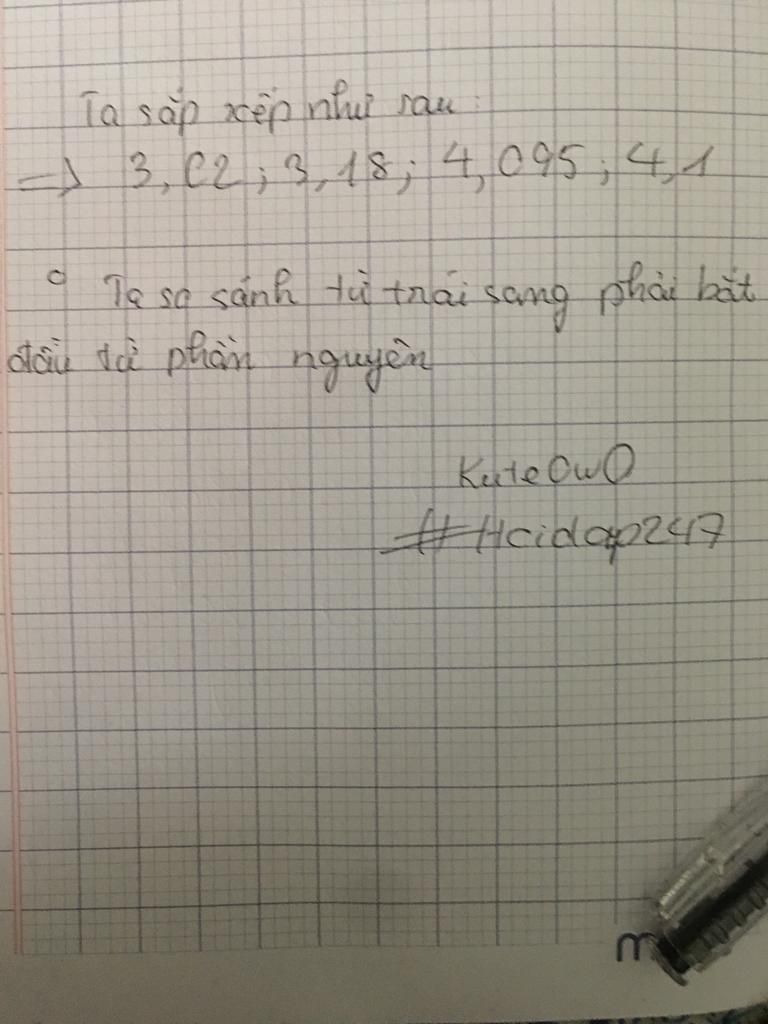 Ta sắp xếp như sau:
=> 3,02; 3,18; 4,095; 4,1
° Ta so sánh từ trái sang phải bắt
đầu từ phần nguyên
KuteOwO
#Hoidap247
m